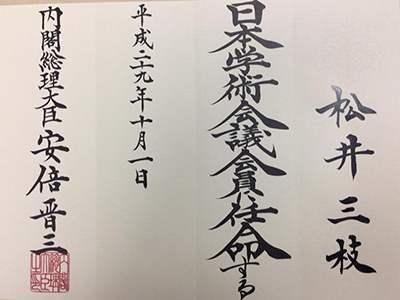 松井三枝
日本学術会議会員に任命する
平成二十九年十月一日
内閣総理大臣 安倍晋三